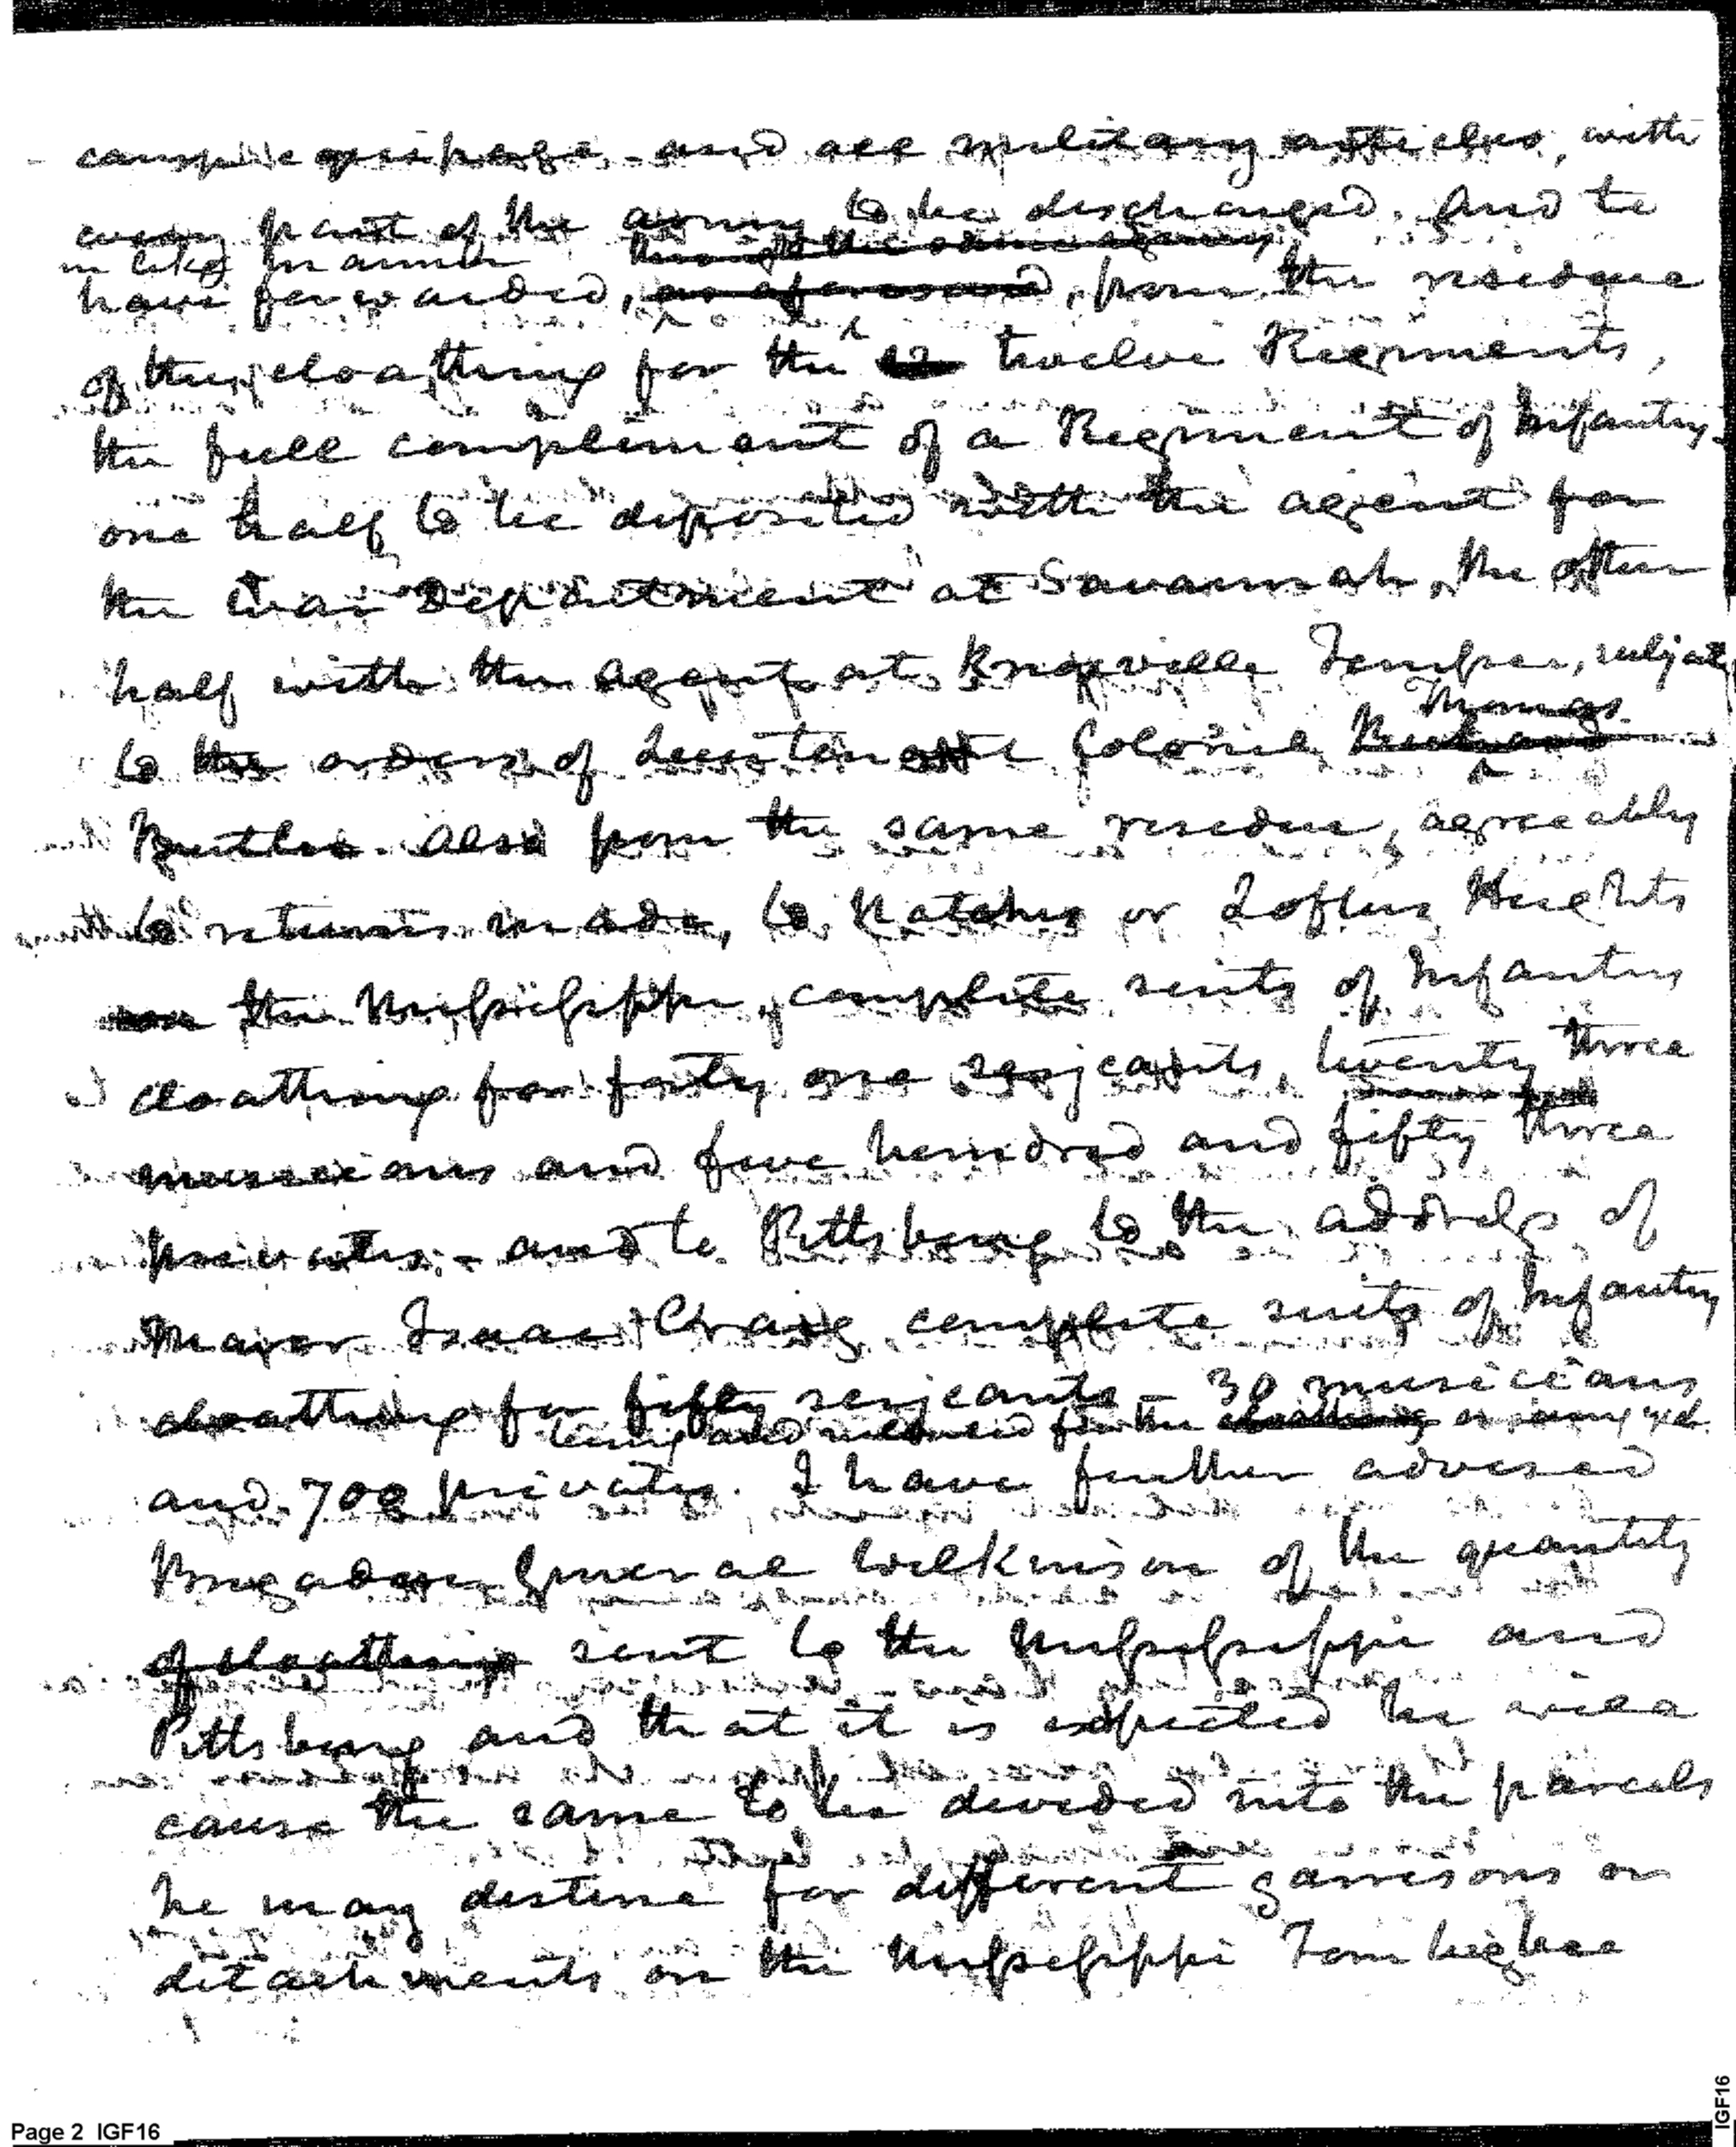 camp equipage and all military articles, with
every part of the army to be discharged. And to
in like manner through the same agency
have forwarded, as aforesaid, from the residue
of the cloathing for the 12 twelve Regiments,
the full compliment of a Regiment of Infantry.
one half to be deposited with the agent for
the War Department at Savannah, the other
half with the agent at Knoxville Tennessee, subject
Thomas
to the orders of Lieutenant Colonel Richard
Butler. Also from the same residue, agreeably
to returns made, to Natches or Loftus Heights
on the Mississippi, complete suits of Infantry
cloathing for forty one serjeants, twenty three
musicians and five hundred and fifty three
privates; - and to Pittsburg to the address of
Major Isaac Craig complete suits of Infantry
cloathing for fifty serjeants - 30 musicians
being and for the cloathing
and 700 privates. I have further advised
Brigadier General Wilkinson of the quantity
of cloathing sent to the Mississippi and
Pittsburg and that it is expected he will
cause the same to be devided into the parcels
he may destine for different garrisons or
detachments on the Mississippi Tombigbee
Page 2 IGF16
IGF16